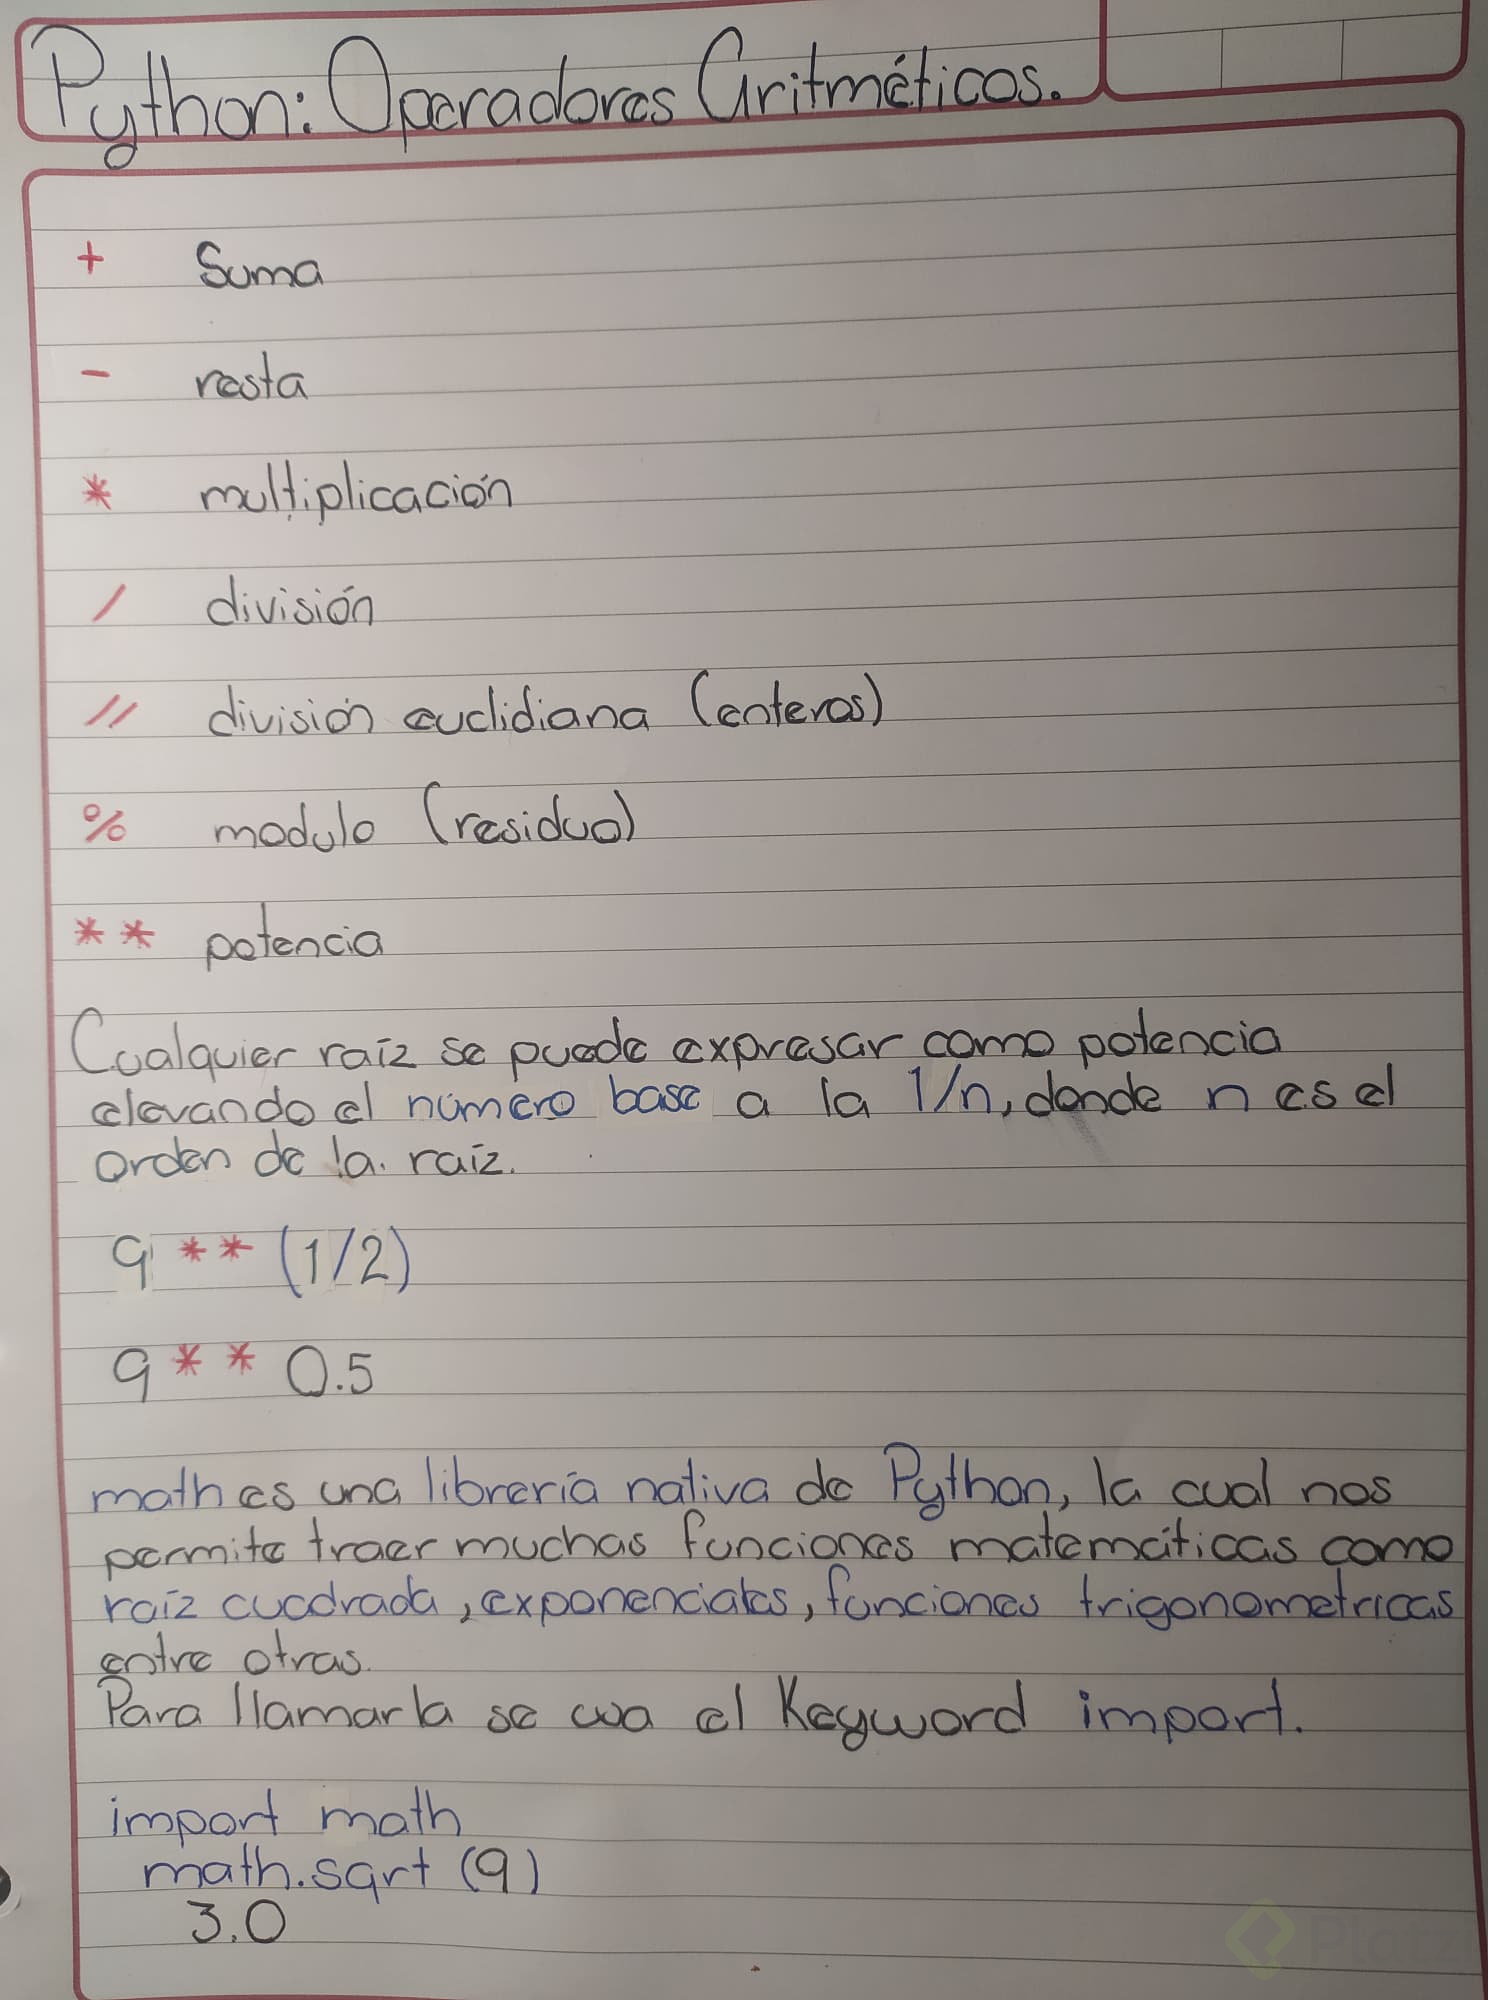 Python: Operadores Aritméticos.
+ Suma
- resta
* multiplicación
/ división
// división euclidiana (enteros)
% modulo (residuo)
** potencia
Cualquier raíz se puede expresar como potencia
elevando el número base a la 1/n, donde n es el
orden de la raíz.
9 ** (1/2)
9 ** 0.5
math es una librería nativa de Python, la cual nos
permite traer muchas funciones matemáticas como
raíz cuadrada, exponenciales, funciones trigonometricas
entre otras.
Para llamarla se usa el Keyword import.
import math
math.sqrt (9)
3.0
Platzi